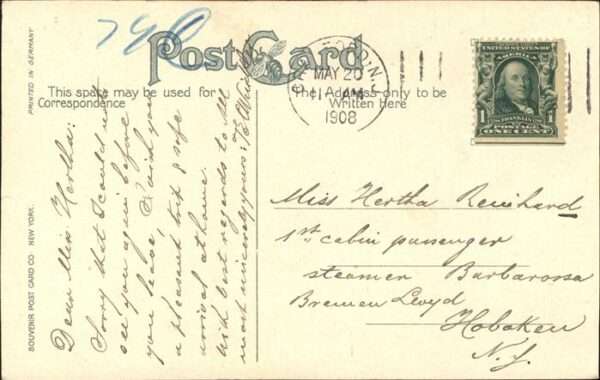 790
Post Card
PRINTED IN GERMANY
This space may be used for
Correspondence
The Address only to be
Written Here
MAY 20
11 AM
1908
UNITED STATES OF
AMERICA
FRANKLIN
1 1
POSTAGE
ONE CENT
SOUVENIR POST CARD CO. NEW YORK.
Dear Miss Hertha:
Sorry that I could not
see you again before
you leave, I wish you
a pleasant trip & safe
arrival at home.
With best regards to all
most sincerely yours:
Miss Hertha Reinhard
1st cabin passenger
steamer Barbarossa
Bremen Lloyd
Hoboken
N. J.